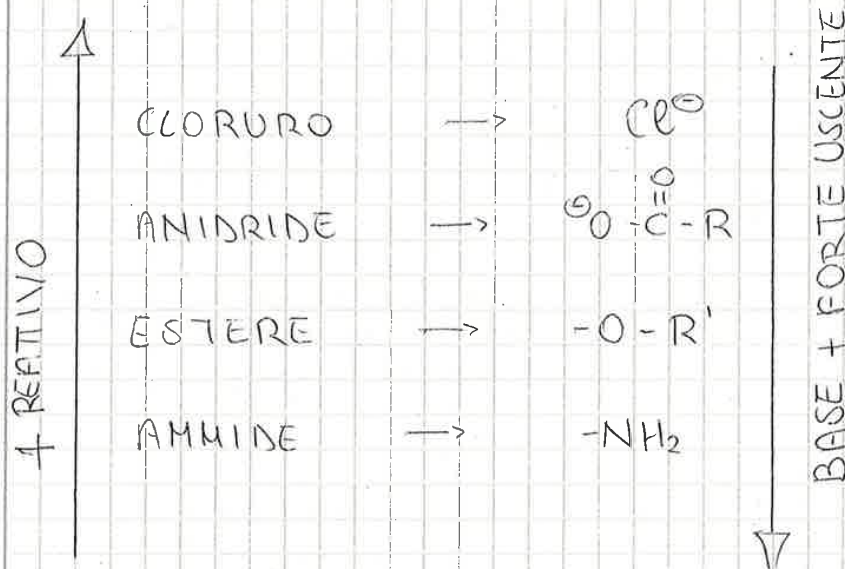 + REATTIVO
CLORURO → Cl⊖
ANIDRIDE → ⊖O-C(=O)-R
ESTERE → -O-R'
AMMIDE → -NH₂
BASE + FORTE USCENTE